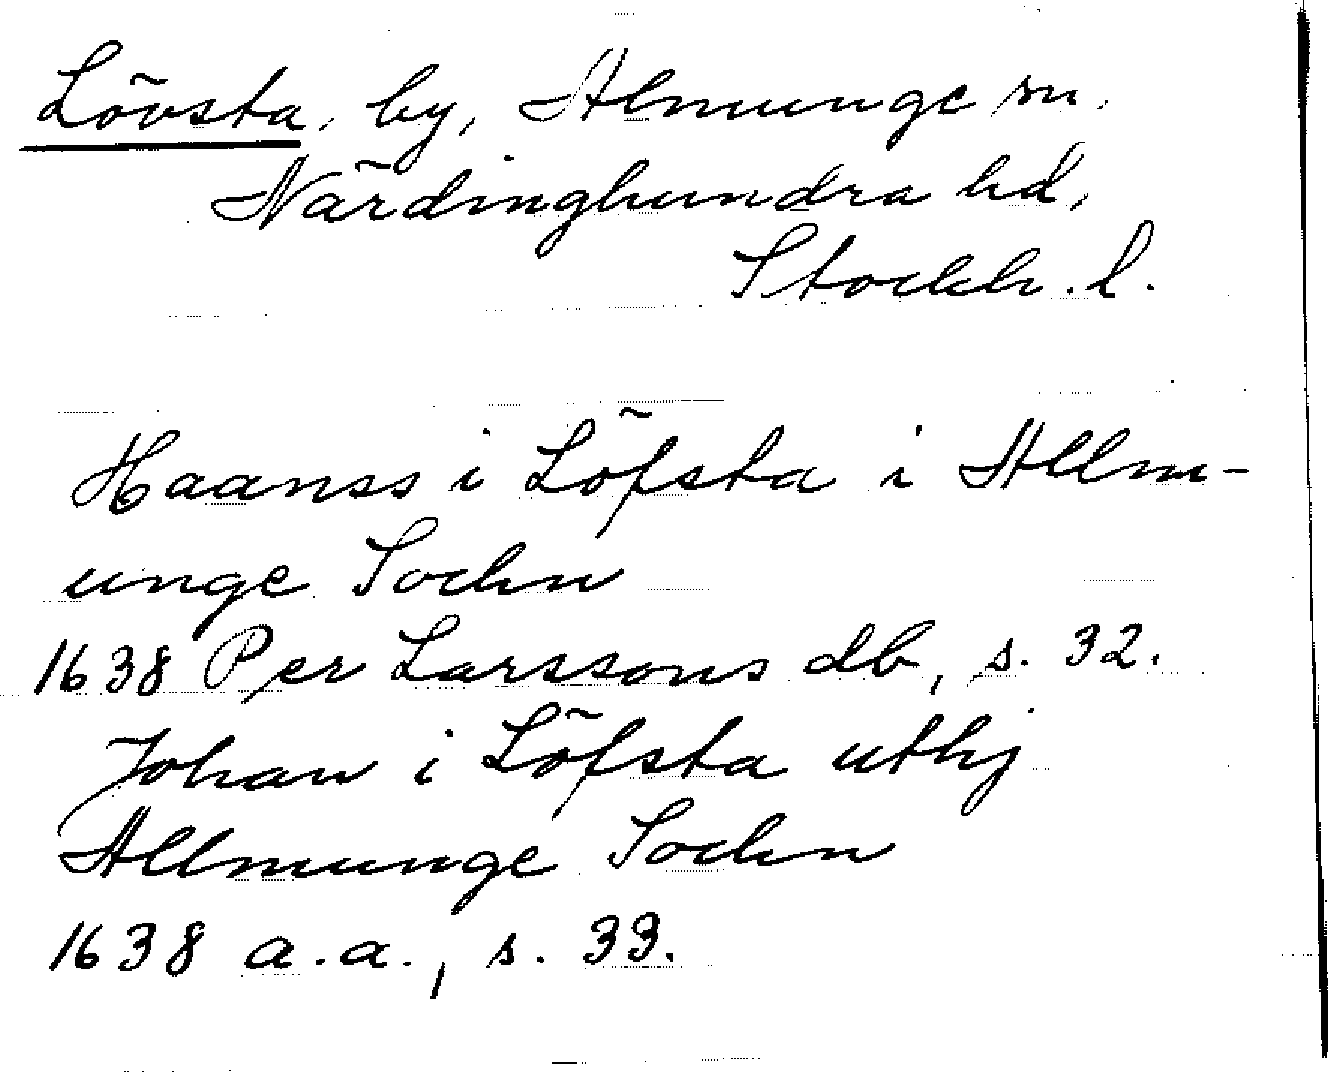 Lövsta, by, Almunge sn.
Närdinghundra hd,
Stockh. l.
Haanss i Löfsta i Allm-
unge Sochn
1638 Per Larssons db, s. 32.
Johan i Löfsta uthj
Allmunge Sochn
1638 a.a., s. 33.